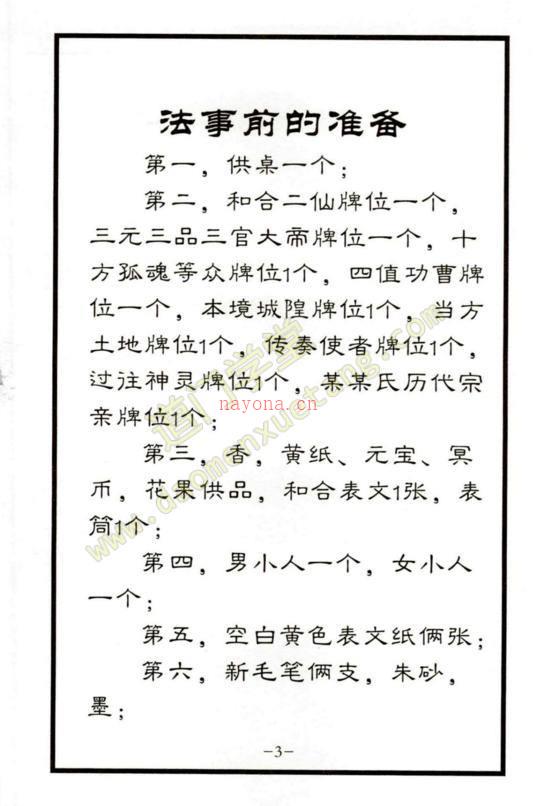 法事前的准备
第一，供桌一个；
第二，和合二仙牌位一个，
三元三品三官大帝牌位一个，十
方孤魂等众牌位1个，四值功曹牌
位一个，本境城隍牌位1个，当方
土地牌位1个，传奏使者牌位1个，
过往神灵牌位1个，某某氏历代宗
亲牌位1个；
第三，香，黄纸、元宝、冥
币，花果供品，和合表文1张，表
筒1个；
第四，男小人一个，女小人
一个；
第五，空白黄色表文纸俩张；
第六，新毛笔俩支，朱砂，
墨；
-3-
道门学堂
nayona.cn
www.daomenxuetang.com